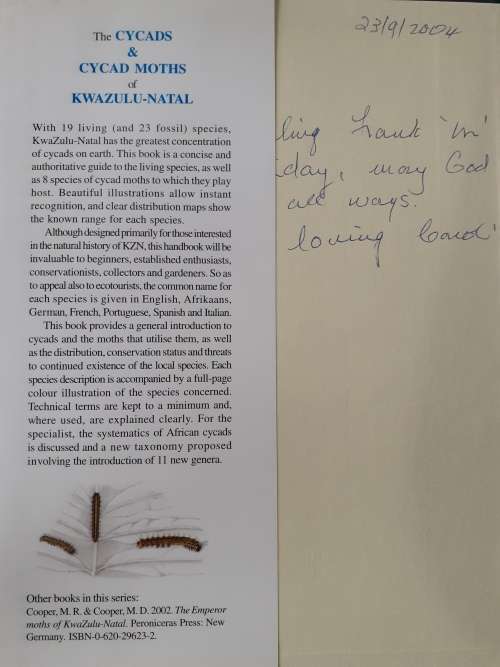 The CYCADS
&
CYCAD MOTHS
of
KWAZULU-NATAL
With 19 living (and 23 fossil) species,
KwaZulu-Natal has the greatest concentration
of cycads on earth. This book is a concise and
authoritative guide to the living species, as well
as 8 species of cycad moths to which they play
host. Beautiful illustrations allow instant
recognition, and clear distribution maps show
the known range for each species.
Although designed primarily for those interested
in the natural history of KZN, this handbook will be
invaluable to beginners, established enthusiasts,
conservationists, collectors and gardeners. So as
to appeal also to ecotourists, the common name for
each species is given in English, Afrikaans,
German, French, Portuguese, Spanish and Italian.
This book provides a general introduction to
cycads and the moths that utilise them, as well
as the distribution, conservation status and threats
to continued existence of the local species. Each
species description is accompanied by a full-page
colour illustration of the species concerned.
Technical terms are kept to a minimum and,
where used, are explained clearly. For the
specialist, the systematics of African cycads
is discussed and a new taxonomy proposed
involving the introduction of 11 new genera.
Other books in this series:
Cooper, M. R. & Cooper, M. D. 2002. The Emperor
moths of KwaZulu-Natal. Peroniceras Press: New
Germany. ISBN-0-620-29623-2.
23/9/2004
ling
day, may God
all ways.
loving